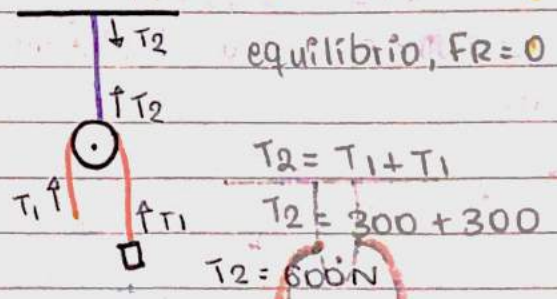 ↓ T2
equilíbrio, FR = 0
↑ T2
T2 = T1 + T1
T1 ↑
↑ T1
T2 = 300 + 300
T2 = 600N